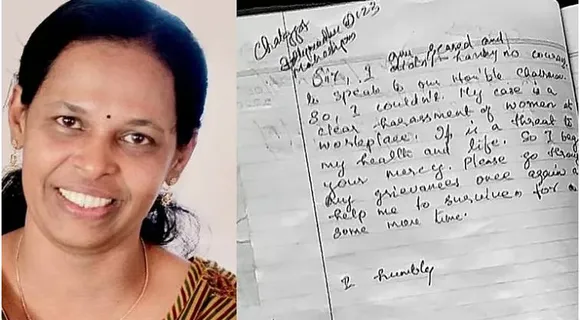 Sir, I am scared and
having no courage
to speak to our Hon'ble Chairman.
So, I couldn't. My case is a
clear harassment of women at
workplace. It is a threat to
my health and life. So I beg
your mercy. Please go through
my grievances once again a
help me to survive for
some more time.
I humbly